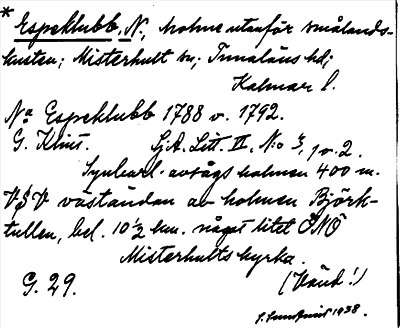 * Espeklubb, N., holme utanför smålands-
kusten; Misterhult sn; Tunaläns hd;
Kalmar l.
Na Espeklubb 1788 o. 1792.
G. Klint. Sj.A. Litt. II, N:o 3, 1 o. 2.
Synbarl. avsågs holmen 400 m.
VSV väständan av holmen Björk-
kullen, bel. 10½ km. något litet ÖNÖ
Misterhults kyrka.
G. 29. (Vänd!)
1938.